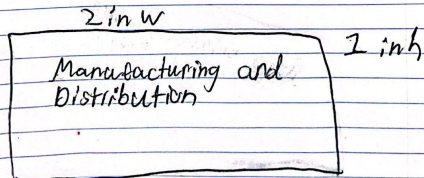 2 in w
1 in h
Manufacturing and
Distribution